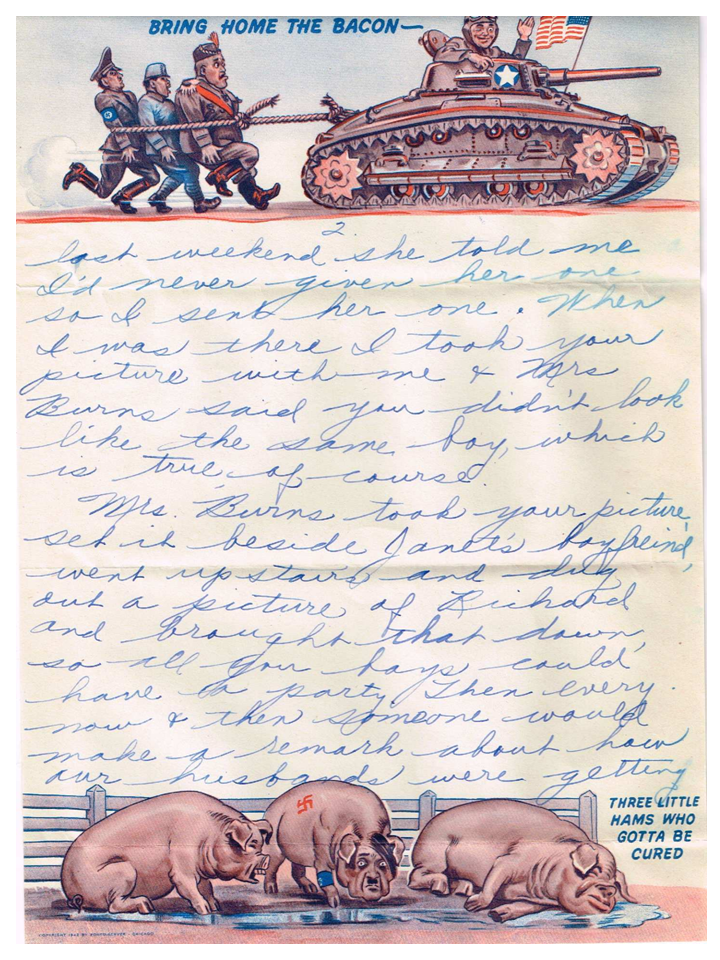 BRING HOME THE BACON—
2.
last weekend she told me
I'd never given her one
so I sent her one. When
I was there I took your
picture with me & Mrs
Burns said you didn't look
like the same boy, which
is true, of course.
Mrs. Burns took your picture
set it beside Janet's boyfreind,
went upstairs and dug
out a picture of Richard
and brought that down,
so all you boys could
have a party. Then every
now & then someone would
make a remark about how
our husbands were getting
THREE LITTLE
HAMS WHO
GOTTA BE
CURED